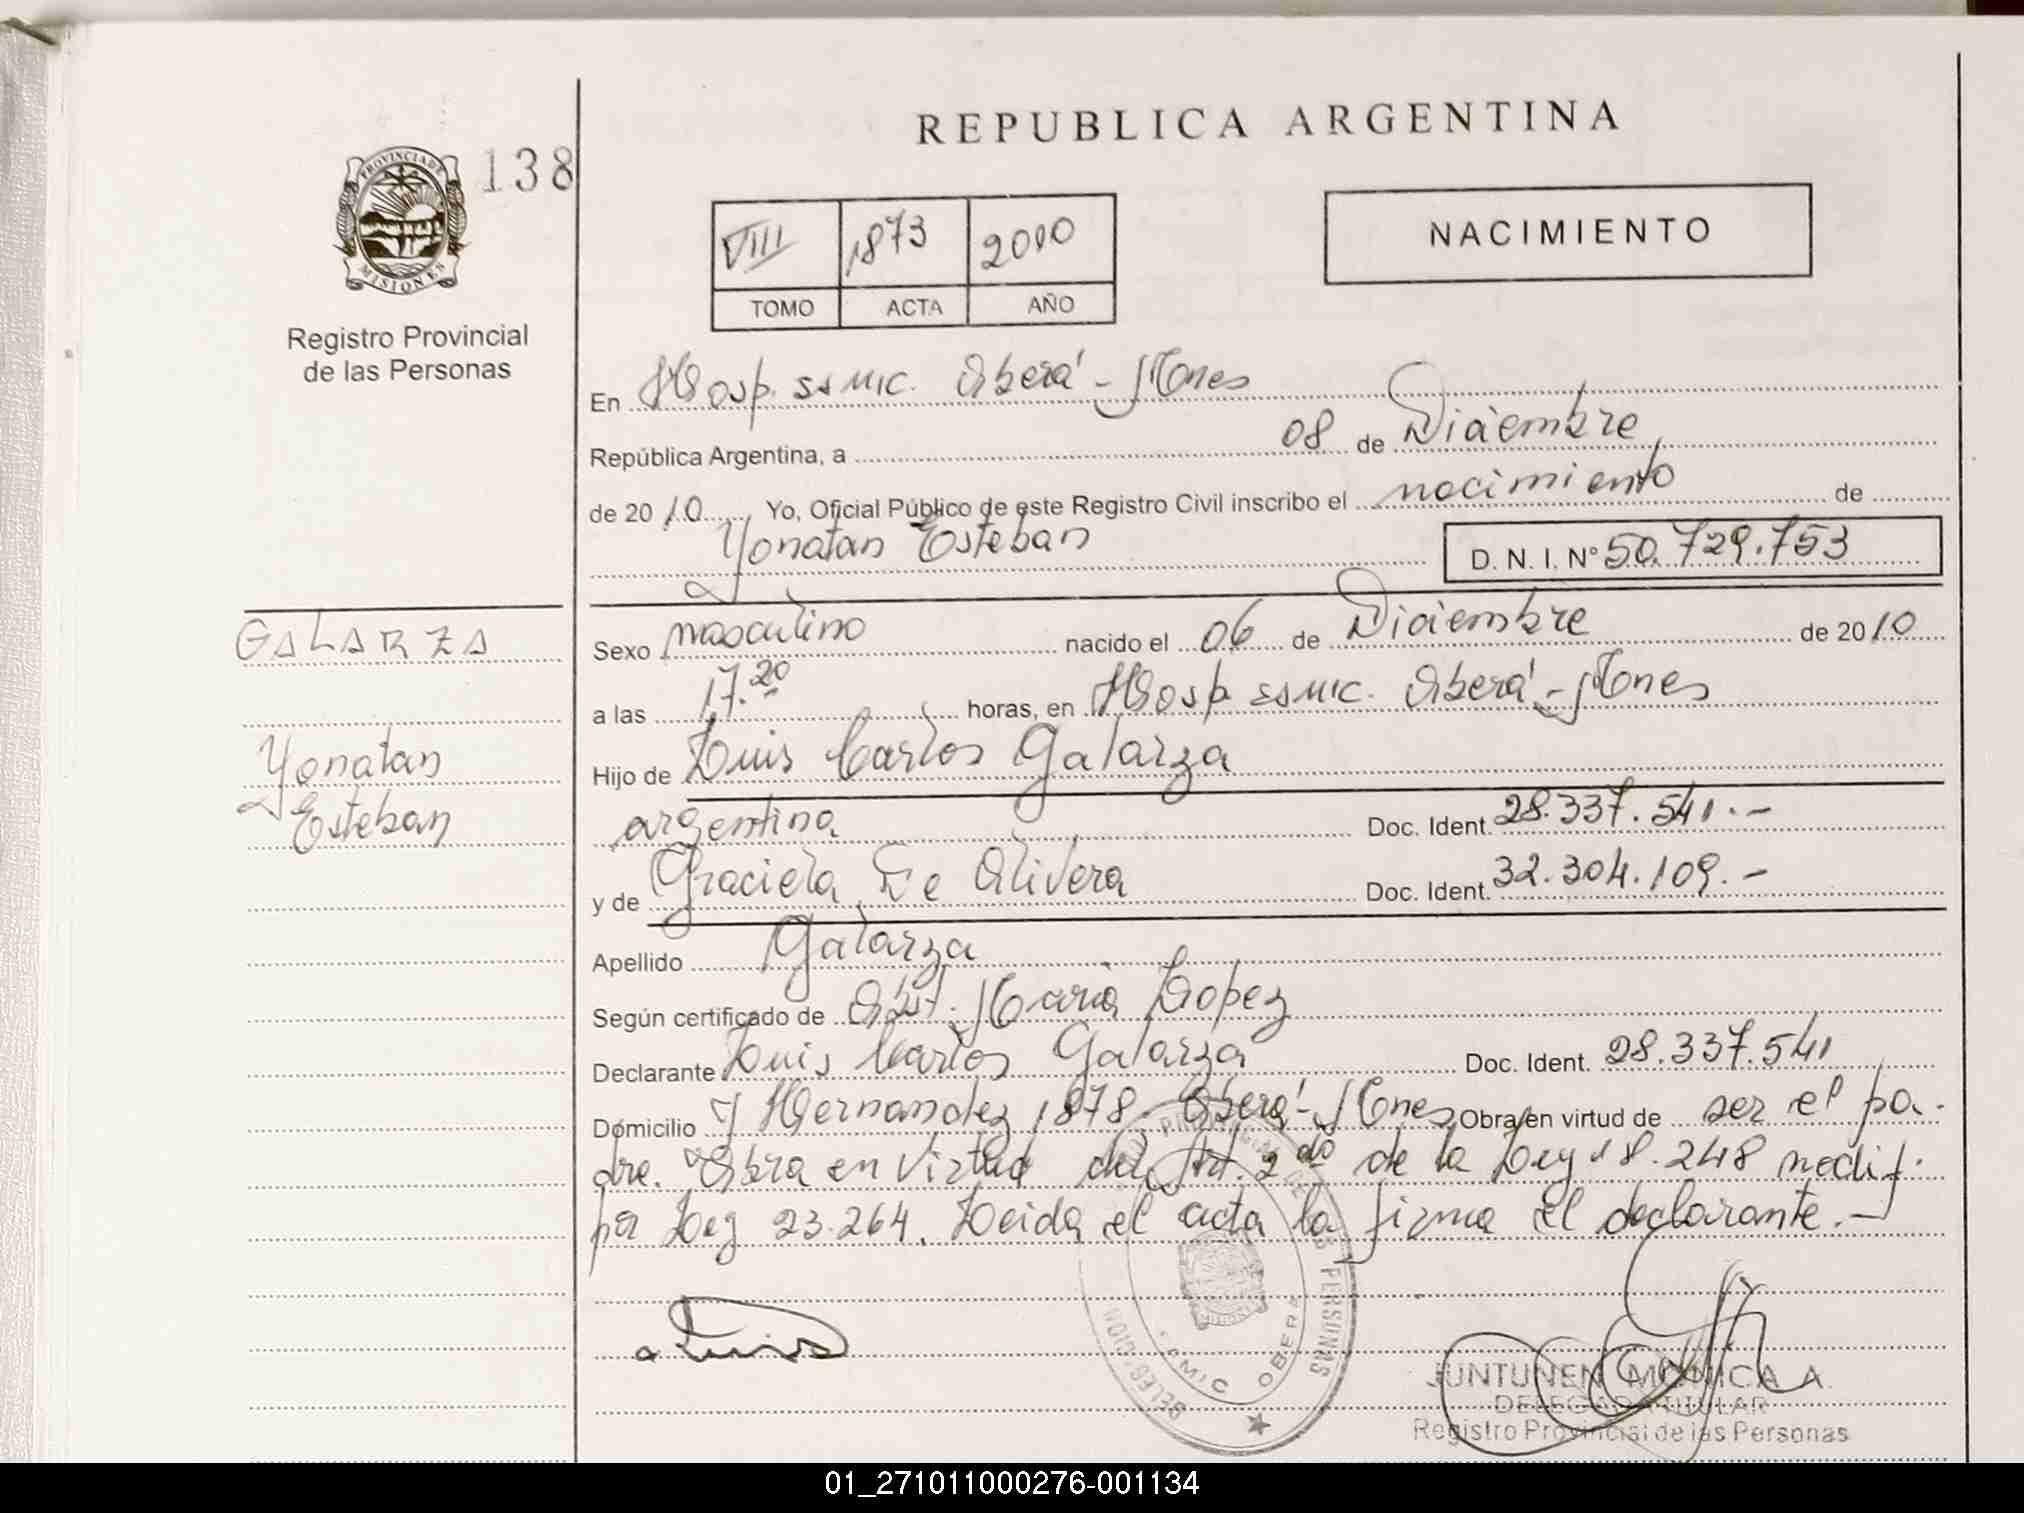 REPUBLICA ARGENTINA
PROVINCIA DE
MISIONES
138
Registro Provincial
de las Personas
VIII 1873 2010
TOMO ACTA AÑO
NACIMIENTO
En Hosp. SSMIC. Oberá - Mnes
República Argentina, a 08 de Diciembre
de 2010 Yo, Oficial Público de este Registro Civil inscribo el nacimiento de
Yonatan Esteban
D. N. I. Nº 50.729.753
GALARZA
Yonatan
Esteban
Sexo masculino nacido el 06 de Diciembre de 2010
a las 17.20 horas, en Hosp SSMIC. Oberá - Mnes
Hijo de Luis Carlos Galarza
argentina Doc. Ident. 28.337.541.-
y de Graciela De Olivera Doc. Ident. 32.304.109.-
Apellido Galarza
Según certificado de Obst. Maria Lopez
Declarante Luis Carlos Galarza Doc. Ident. 28.337.541
Domicilio J Hernandez 1878. Oberá - Mnes Obra en virtud de ser el pa-
dre. Obra en virtud del Art. 2do de la Ley 18.248 modif.
por Ley 23.264. Leida el acta la firma el declarante.-
Luis
DE LAS PERSONAS
DELEGACION
SAMIC OBERA
MISIONES
JUNTUNEN MONICA A.
DELEGADA TITULAR
Registro Provincial de las Personas
01_271011000276-001134